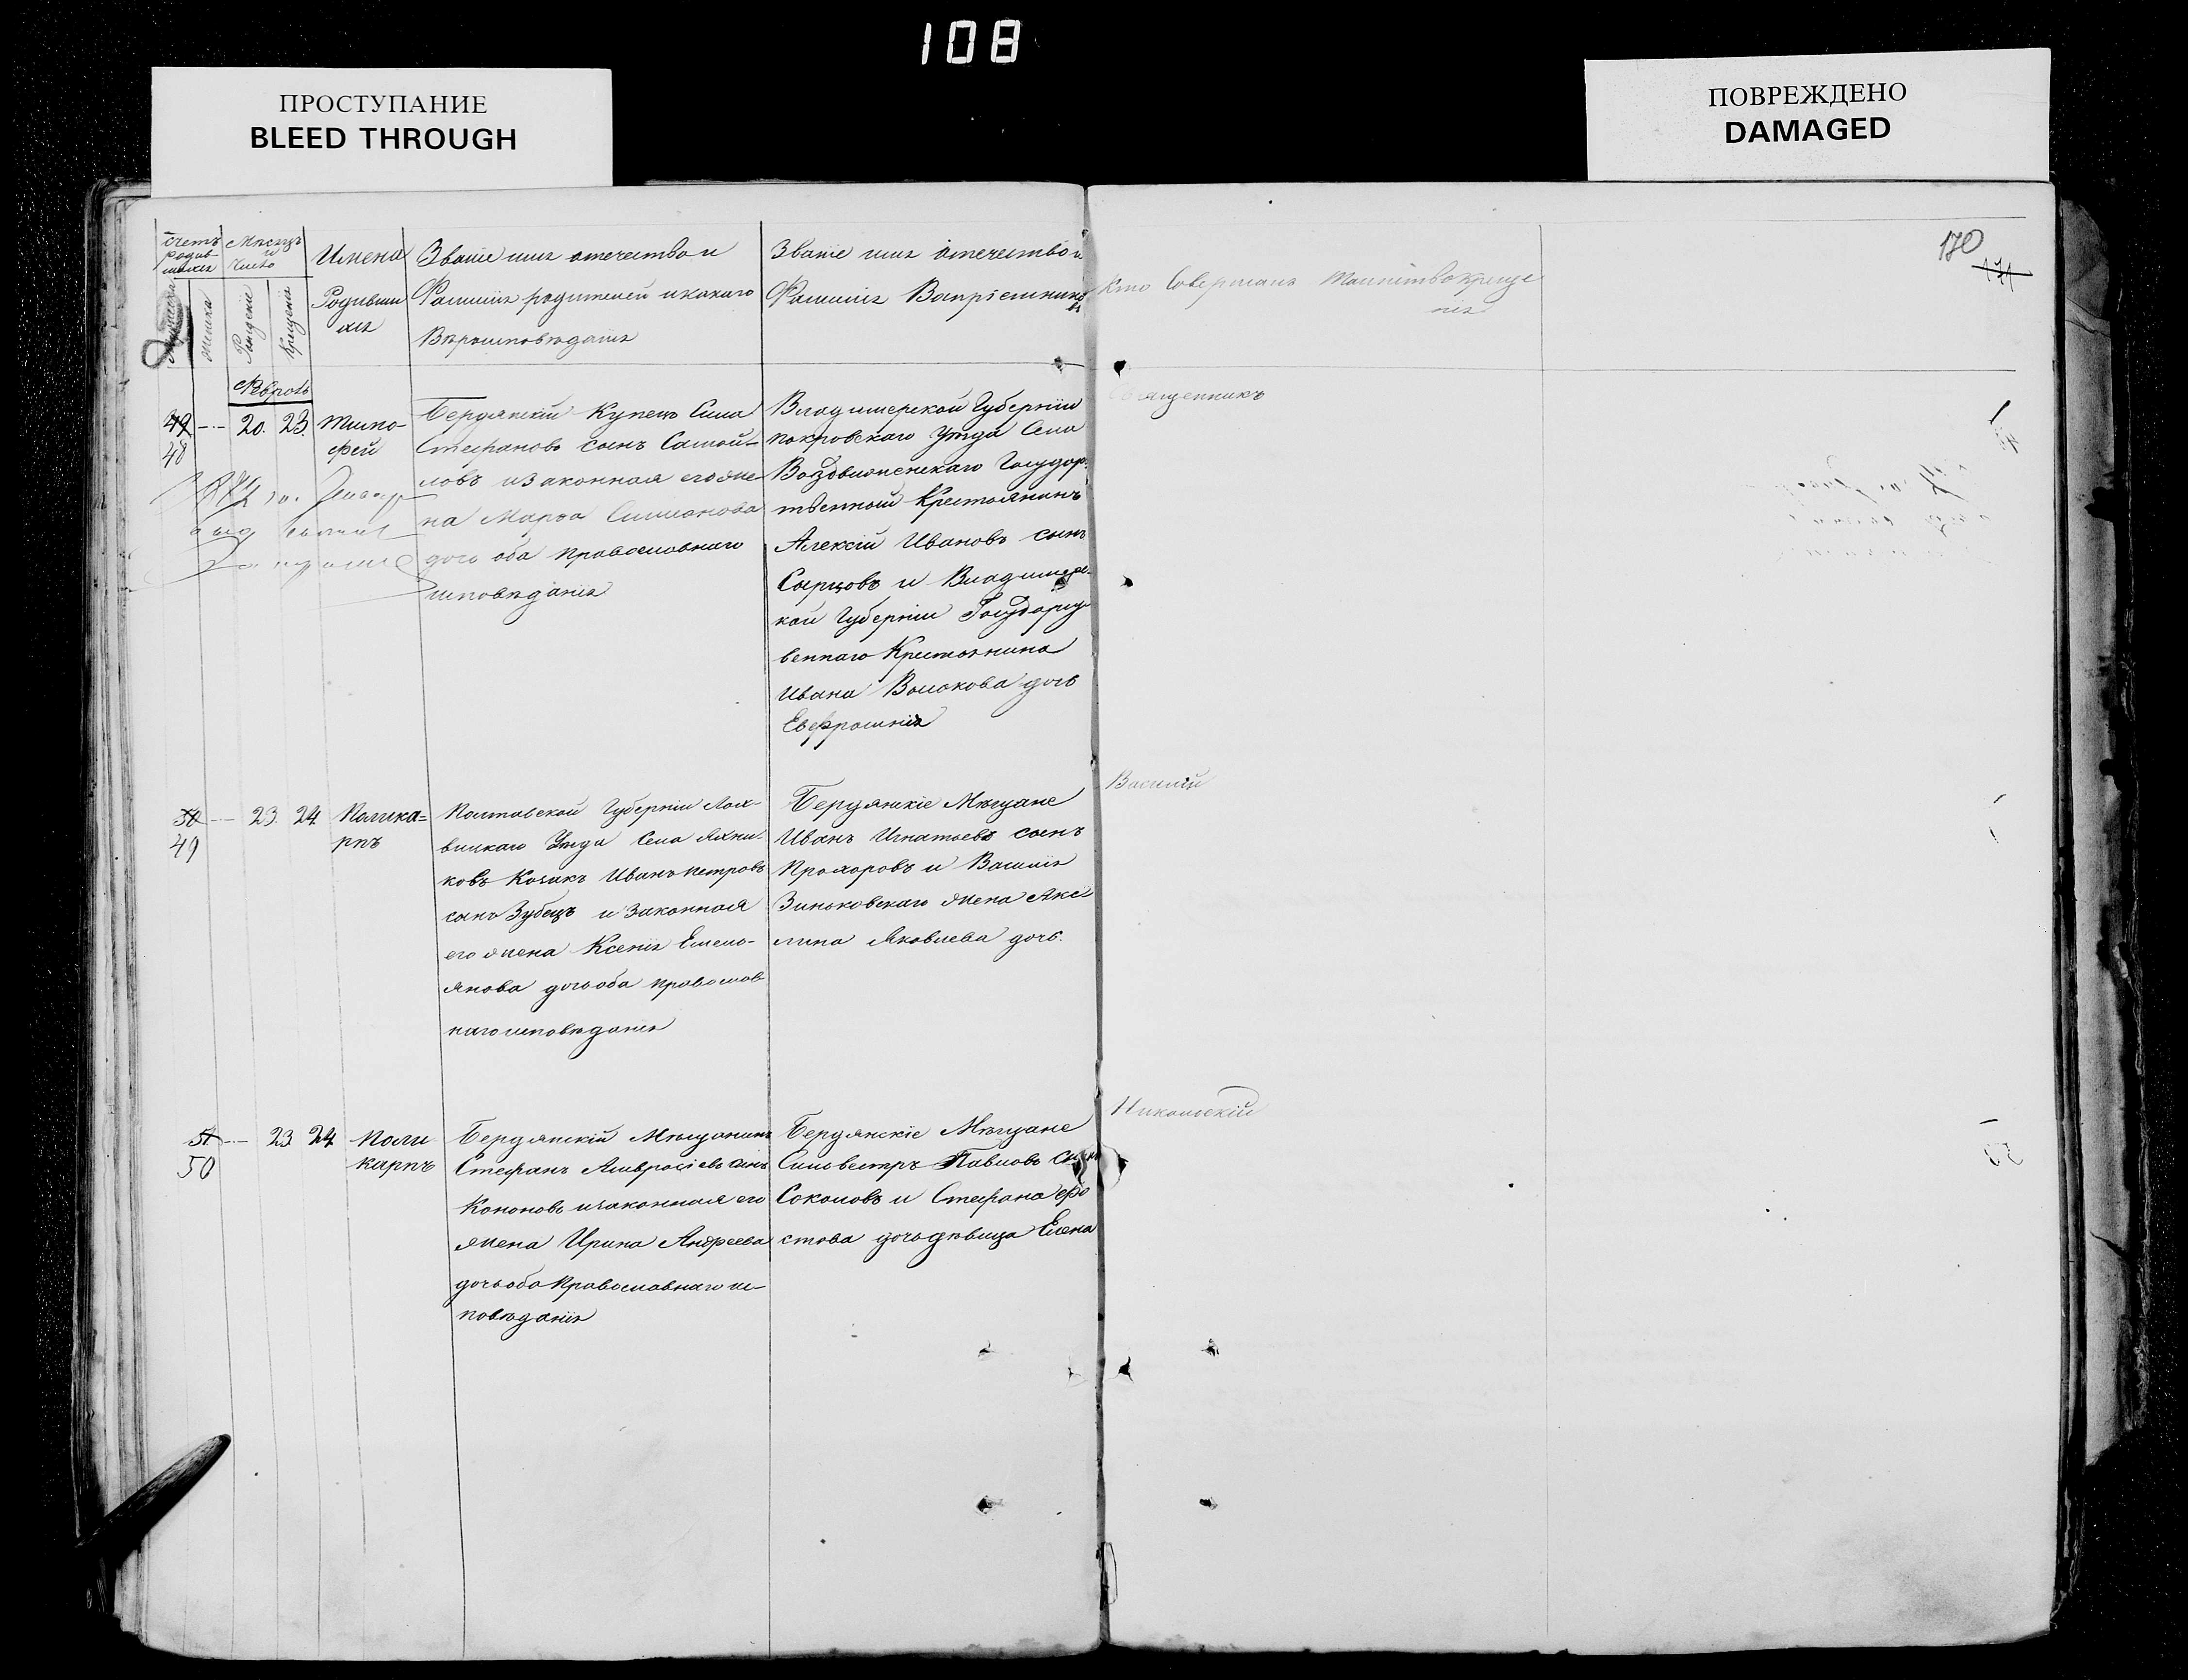 108
ПРОСТУПАНИЕ
BLEED THROUGH
ПОВРЕЖДЕНО
DAMAGED
170
171
Счетъ родив-шихся
Мѣсяцъ и число
Имена Родивши хся
Званіе имя отечество и
Фамилія родителей и какого
Вѣроисповѣданія
Званіе имя отечество и
Фамилія Воспріемнико въ
Кто Совершалъ Таинство Креще нія
женска
Рожденіе
Крещенія
Февраль
49
48
20. 23.
Тимо-
фей
Бердянскій Купецъ Сила
Стефановъ сынъ Самой-
ловъ и законная его же
на Марѳа Симионова
дочь оба православнаго
исповѣданія
Владимерской Губерніи
покровскаго уѣзда Села
Воздвиженскаго Государ-
твенной Крестьянинъ
Алексій Ивановъ сынъ
Сырцовъ и Владимерс-
кой Губерніи Государст
веннаго Крестьянина
Ивана Волокова дочь
Евфросинія
Священникъ
50
49
23. 24.
Полика=
рпъ
Полтавской Губерніи Лох-
вицкаго Уѣзда Села Яхни-
ковъ Козакъ Иванъ Петровъ
сынъ Зубецъ и законная
его жена Ксенія Емель-
янова дочь оба православ
наго исповѣданія
Бердянскіе Мѣщане
Иванъ Игнатьевъ сынъ
Прохоровъ и Василія
Зиньковскаго жена Аку
лина Яковлева дочь.
Василій
51
50
23 24
Поли
карпъ
Бердянскій Мѣщанинъ
Стефанъ Амвросіевъ сынъ
Кононовъ и законная его
жена Ирина Андреева
дочь оба Православнаго ис-
повѣданія
Бердянскіе Мѣщане
Сильвестръ Павловъ сынъ
Соколовъ и Стефана Фо
стова дочь дѣвица Елена
Никольскій